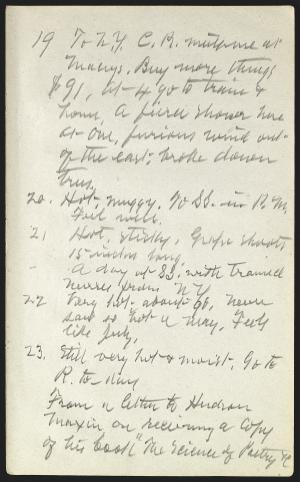 19 To N.Y. C. B. meets me at
Macys, Buy more things
$91, at 4 go to train &
home, A fierce shower here
at one, furious wind out
of the east; broke down
trees.
20. Hot, muggy, to SS. in P.M.
Feel well.
21 Hot, sticky, Grape shoots
15 inches long.
- A day at SS. with trained
nurse from N.Y.
22 Very hot- about 90, never
saw so hot a May, Feels
like July.
23. Still very hot & moist, Go to
R. to-day
From a letter to Hudson
Maxim on receiving a copy
of his book "The Science of Poetry &c